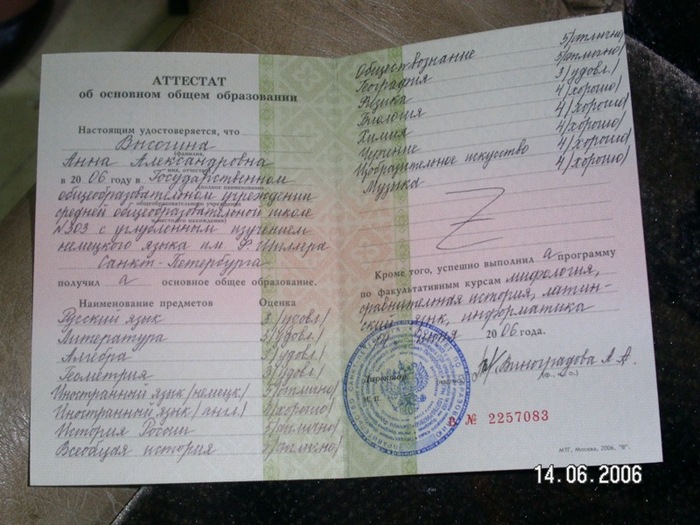 АТТЕСТАТ
об основном общем образовании
Настоящим удостоверяется, что
Высогина
(фамилия,
Анна Александровна
имя, отчество)
в 2006 году в Государственном
общеобразовательном учреждении
средней общеобразовательной школе
№303 с углубленным изучением
немецкого языка им. Ф. Шиллера
Санкт-Петербурга
получил а основное общее образование.
Наименование предметов Оценка
Русский язык 3/удовл/
Литература 3/удовл/
Алгебра 3/удовл/
Геометрия 3/удовл/
Иностранный язык/немецк/ 5/отлично/
Иностранный язык/англ./ 4/хорошо/
История России 5/отлично/
Всеобщая история 5/отлично/
Обществознание 5/отлично/
География 5/отлично/
Физика 3/удовл./
Биология 4/хорошо/
Химия 4/хорошо/
Черчение 4/хорошо/
Изобразительное искусство 4/хорошо/
Музыка 4/хорошо/
Z
Кроме того, успешно выполнил а программу
по факультативным курсам мифология,
сравнительная история, латин-
ский язык, информатика
июня 2006 года.
Виноградова А. А.
М.П.
В № 2257083
МТГ, Москва, 2006, "В".
14.06.2006